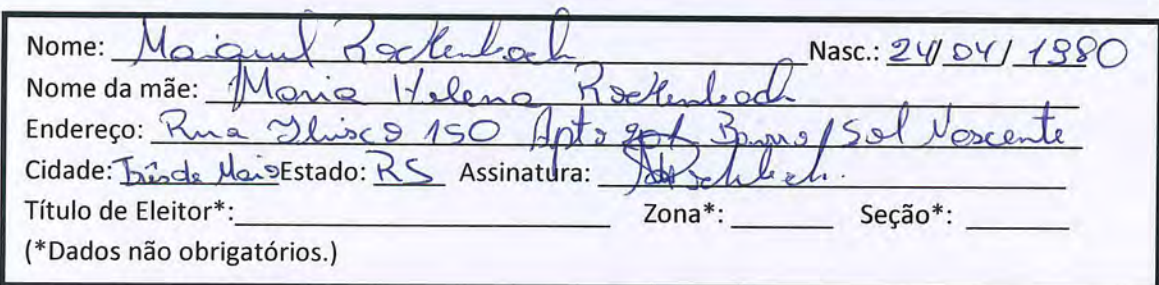 Nome: Maiquel Rockenbach Nasc.: 24/04/1980
Nome da mãe: Maria Helena Rockenbach
Endereço: Rua 150 Apto Bairro/Sol Nascente
Cidade: Três de Maio Estado: RS Assinatura:
Título de Eleitor*: Zona*: Seção*:
(*Dados não obrigatórios.)